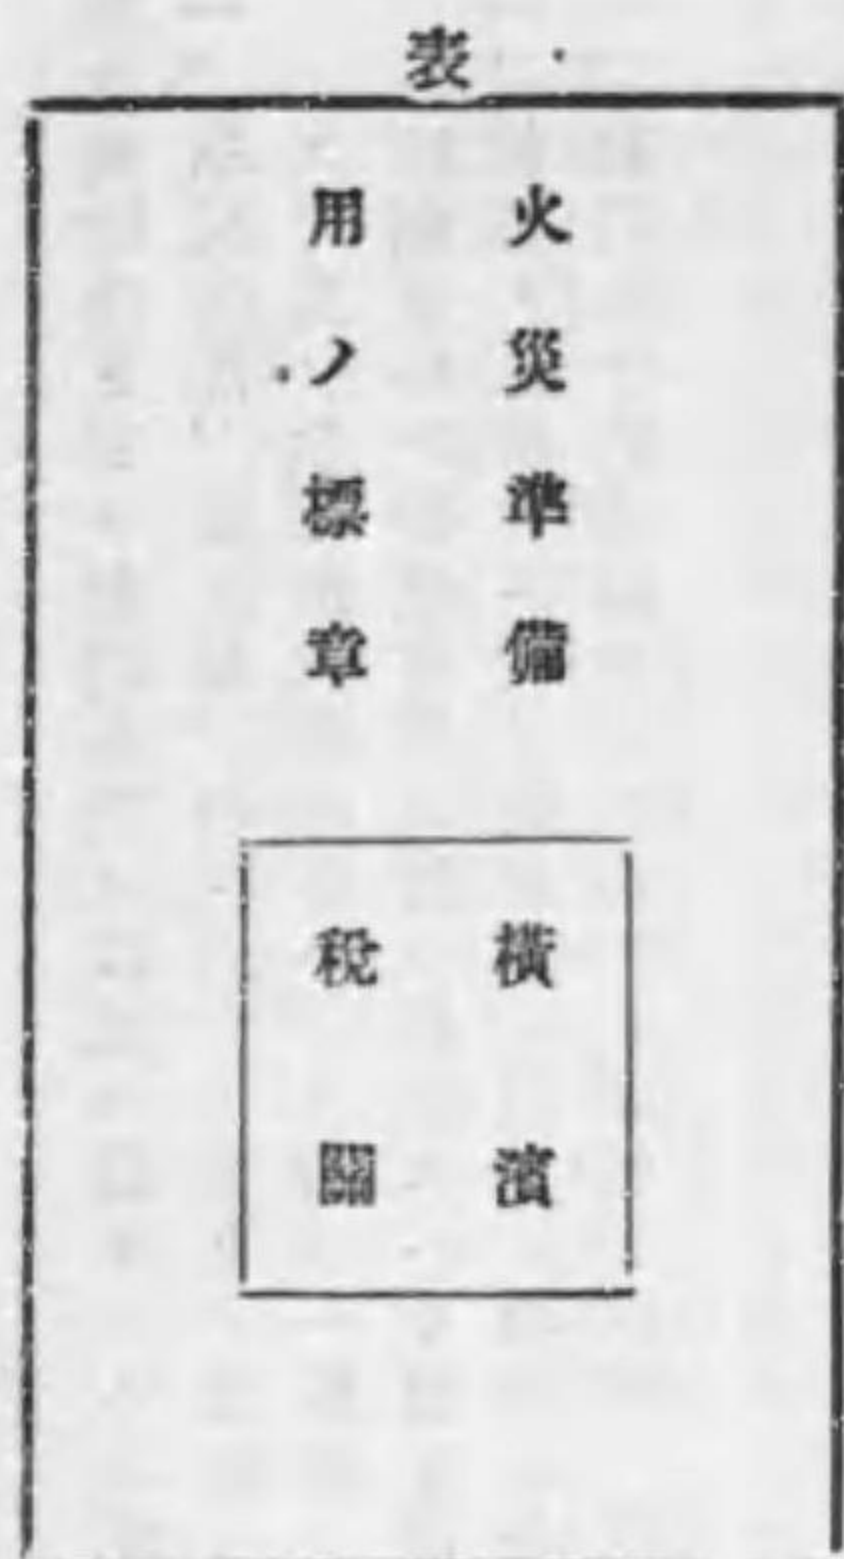 表
火災準備
用ノ標章
橫濱
稅關